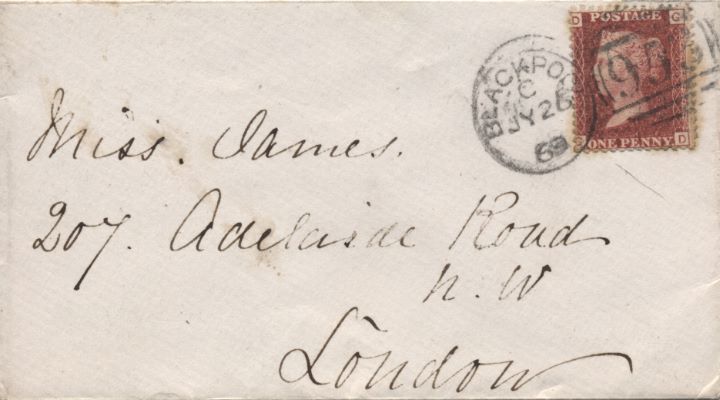 D POSTAGE G
BLACKPOO
C
JY 26
69
ONE PENNY D
Miss. James.
207. Adelaide Road
N. W
London